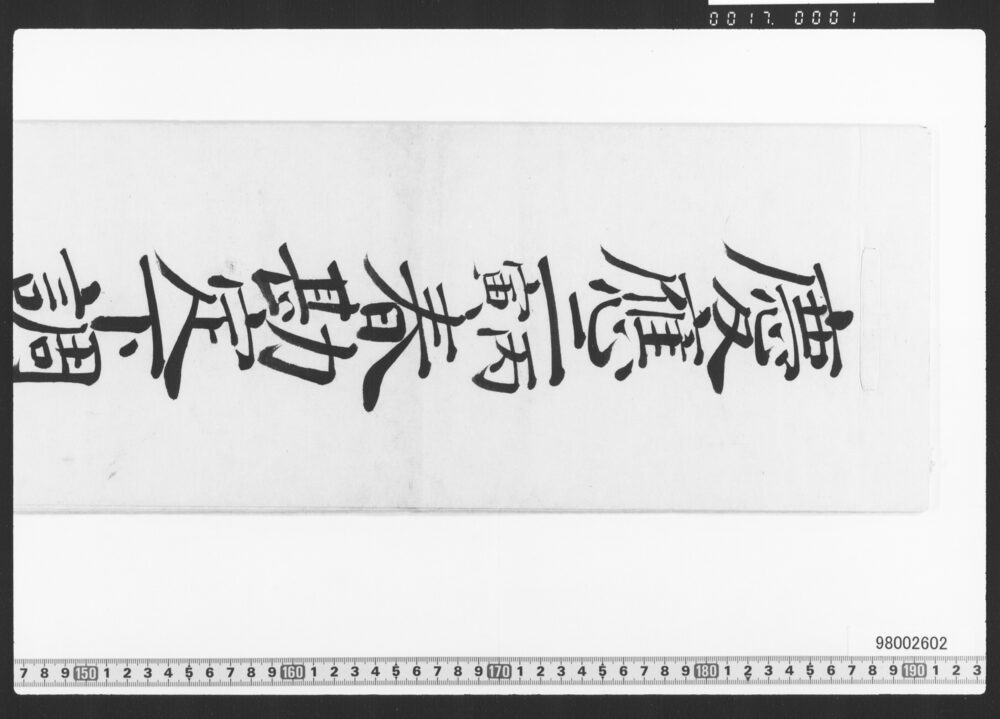 0017.0001
慶應二丙寅春勘定下調
98002602
7 8 9 150 1 2 3 4 5 6 7 8 9 160 1 2 3 4 5 6 7 8 9 170 1 2 3 4 5 6 7 8 9 180 1 2 3 4 5 6 7 8 9 190 1 2 3